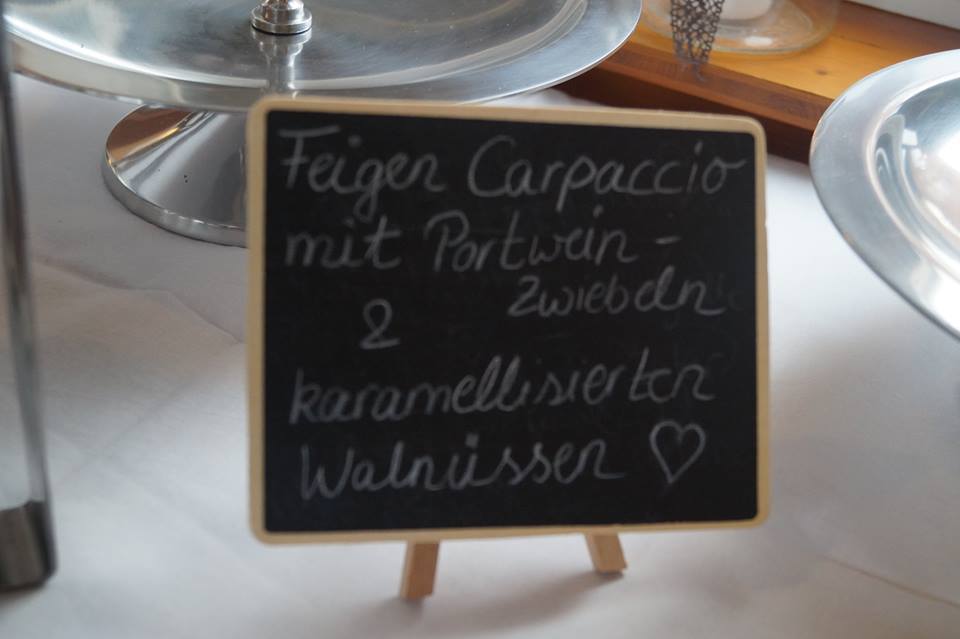 Feigen Carpaccio
mit Portwein-
Zwiebeln
&
karamellisierten
Walnüssen ♡